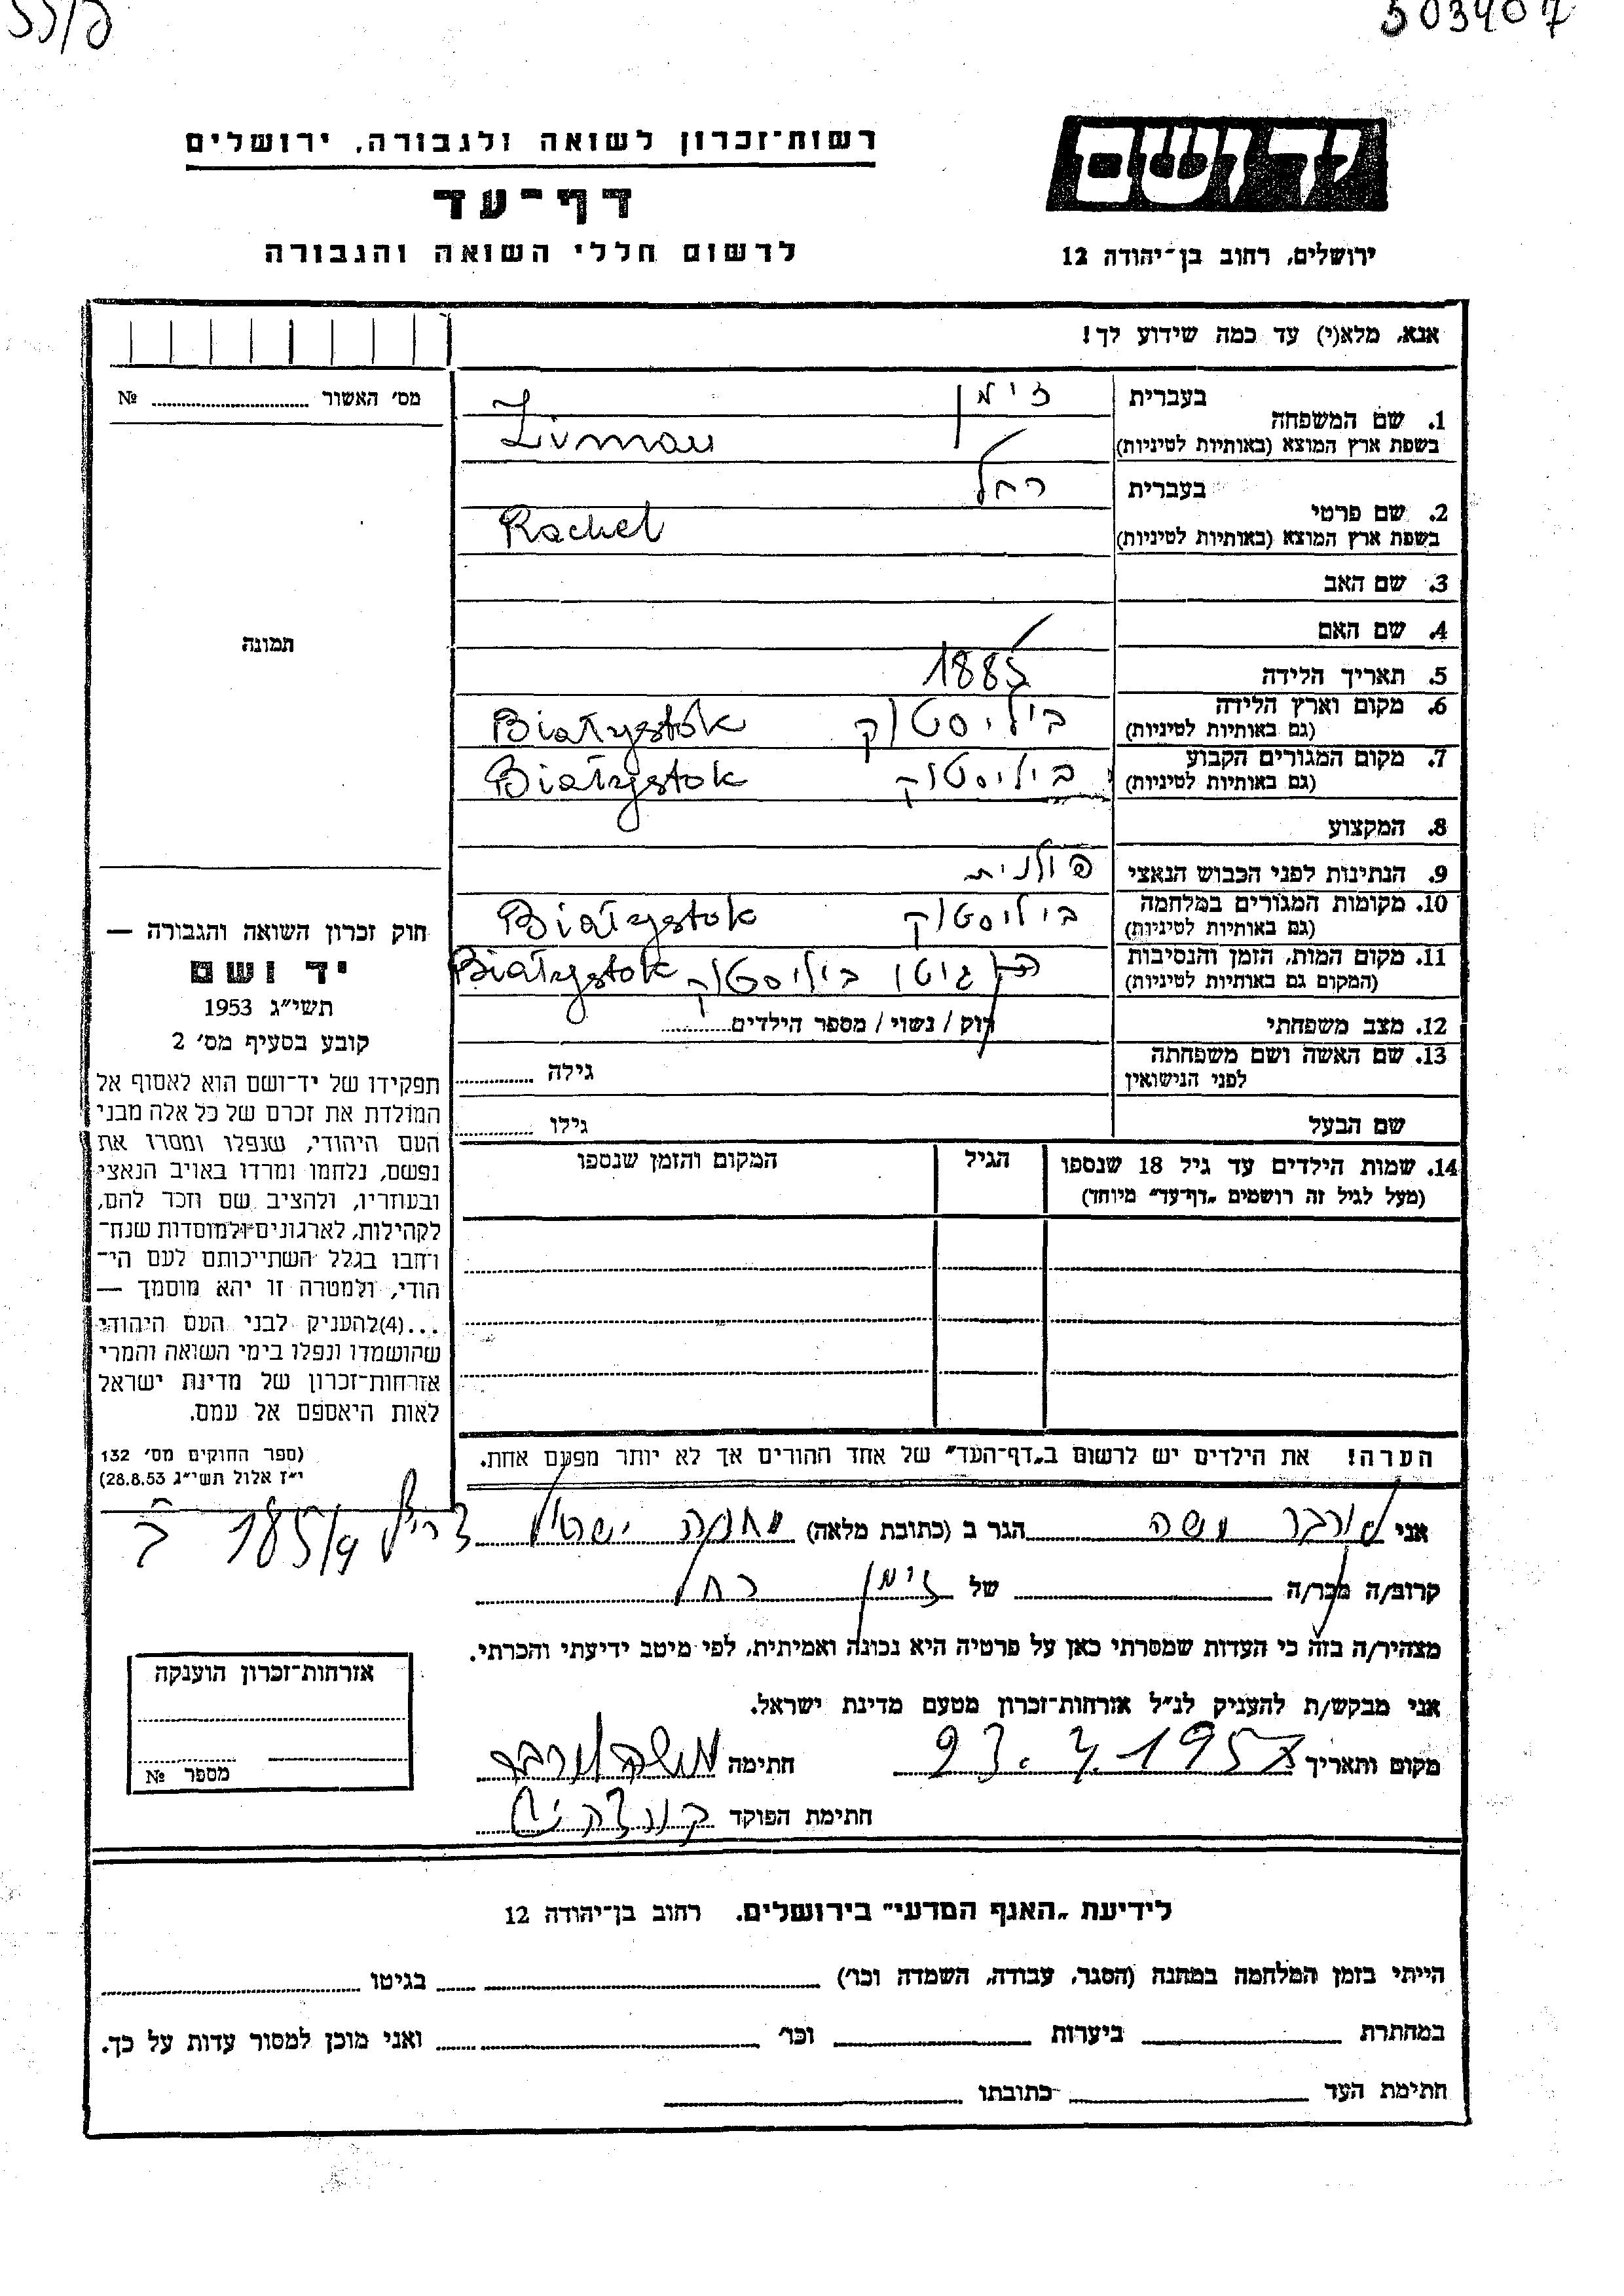 503407
רשות־זכרון לשואה ולגבורה, ירושלים
דף־עד
לרשום חללי השואה והגבורה
יד ושם
ירושלים, רחוב בן־יהודה 12
אנא, מלא(י) עד כמה שידוע לך!
מס׳ האשור № 
תמונה
1. שם המשפחה
בעברית זימן
בשפת ארץ המוצא (באותיות לטיניות)
2. שם פרטי
בעברית רחל
בשפת ארץ המוצא (באותיות לטיניות) Rachel
3. שם האב
4. שם האם
5. תאריך הלידה 1885
6. מקום וארץ הלידה
(גם באותיות לטיניות) ביליסטוק Białystok
7. מקום המגורים הקבוע
(גם באותיות לטיניות) ביליסטוק Białystok
8. המקצוע
9. הנתינות לפני הכבוש הנאצי פולנית
10. מקומות המגורים במלחמה
(גם באותיות לטיניות) ביליסטוק Białystok
11. מקום המות, הזמן והנסיבות
(המקום גם באותיות לטיניות) גיטו ביליסטוק Białystok
12. מצב משפחתי רווק / נשוי / מספר הילדים
13. שם האשה ושם משפחתה
לפני הנישואין גילה
שם הבעל גילו
14. שמות הילדים עד גיל 18 שנספו
(מעל לגיל זה רושמים „דף־עד״ מיוחד)
הגיל
המקום והזמן שנספו
חוק זכרון השואה והגבורה —
יד ושם
תשי״ג 1953
קובע בסעיף מס׳ 2
תפקידו של יד־ושם הוא לאסוף אל
המולדת את זכרם של כל אלה מבני
העם היהודי, שנפלו ומסרו את
נפשם, נלחמו ומרדו באויב הנאצי
ובעוזריו, ולהציב שם וזכר להם,
לקהילות, לארגונים ולמוסדות שנח־
רחבו בגלל השתייכותם לעם הי־
הודי, ולמטרה זו יהא מוסמך —
...(4)להעניק לבני העם היהודי
שהושמדו ונפלו בימי השואה והמרי
אזרחות־זכרון של מדינת ישראל
לאות היאספם אל עמם.
(ספר החוקים מס׳ 132
י״ז אלול תשי״ג 28.8.53)
הערה! את הילדים יש לרשום ב„דף־העד״ של אחד ההורים אך לא יותר מפעם אחת.
אני הגר ב (כתובת מלאה) 185/9
קרוב/ה מכר/ה של זימן רחל
מצהיר/ה בזה כי העדות שמסרתי כאן על פרטיה היא נכונה ואמיתית, לפי מיטב ידיעתי והכרתי.
אני מבקש/ת להעניק לנ״ל אזרחות־זכרון מטעם מדינת ישראל.
מקום ותאריך חתימה
חתימת הפוקד
אזרחות־זכרון הוענקה
מספר №
לידיעת „האגף המדעי״ בירושלים, רחוב בן־יהודה 12
הייתי בזמן המלחמה במחנה (הסגר, עבודה, השמדה וכו׳) בגיטו
במחתרת ביערות וכו׳ ואני מוכן למסור עדות על כך.
חתימת העד כתובתו